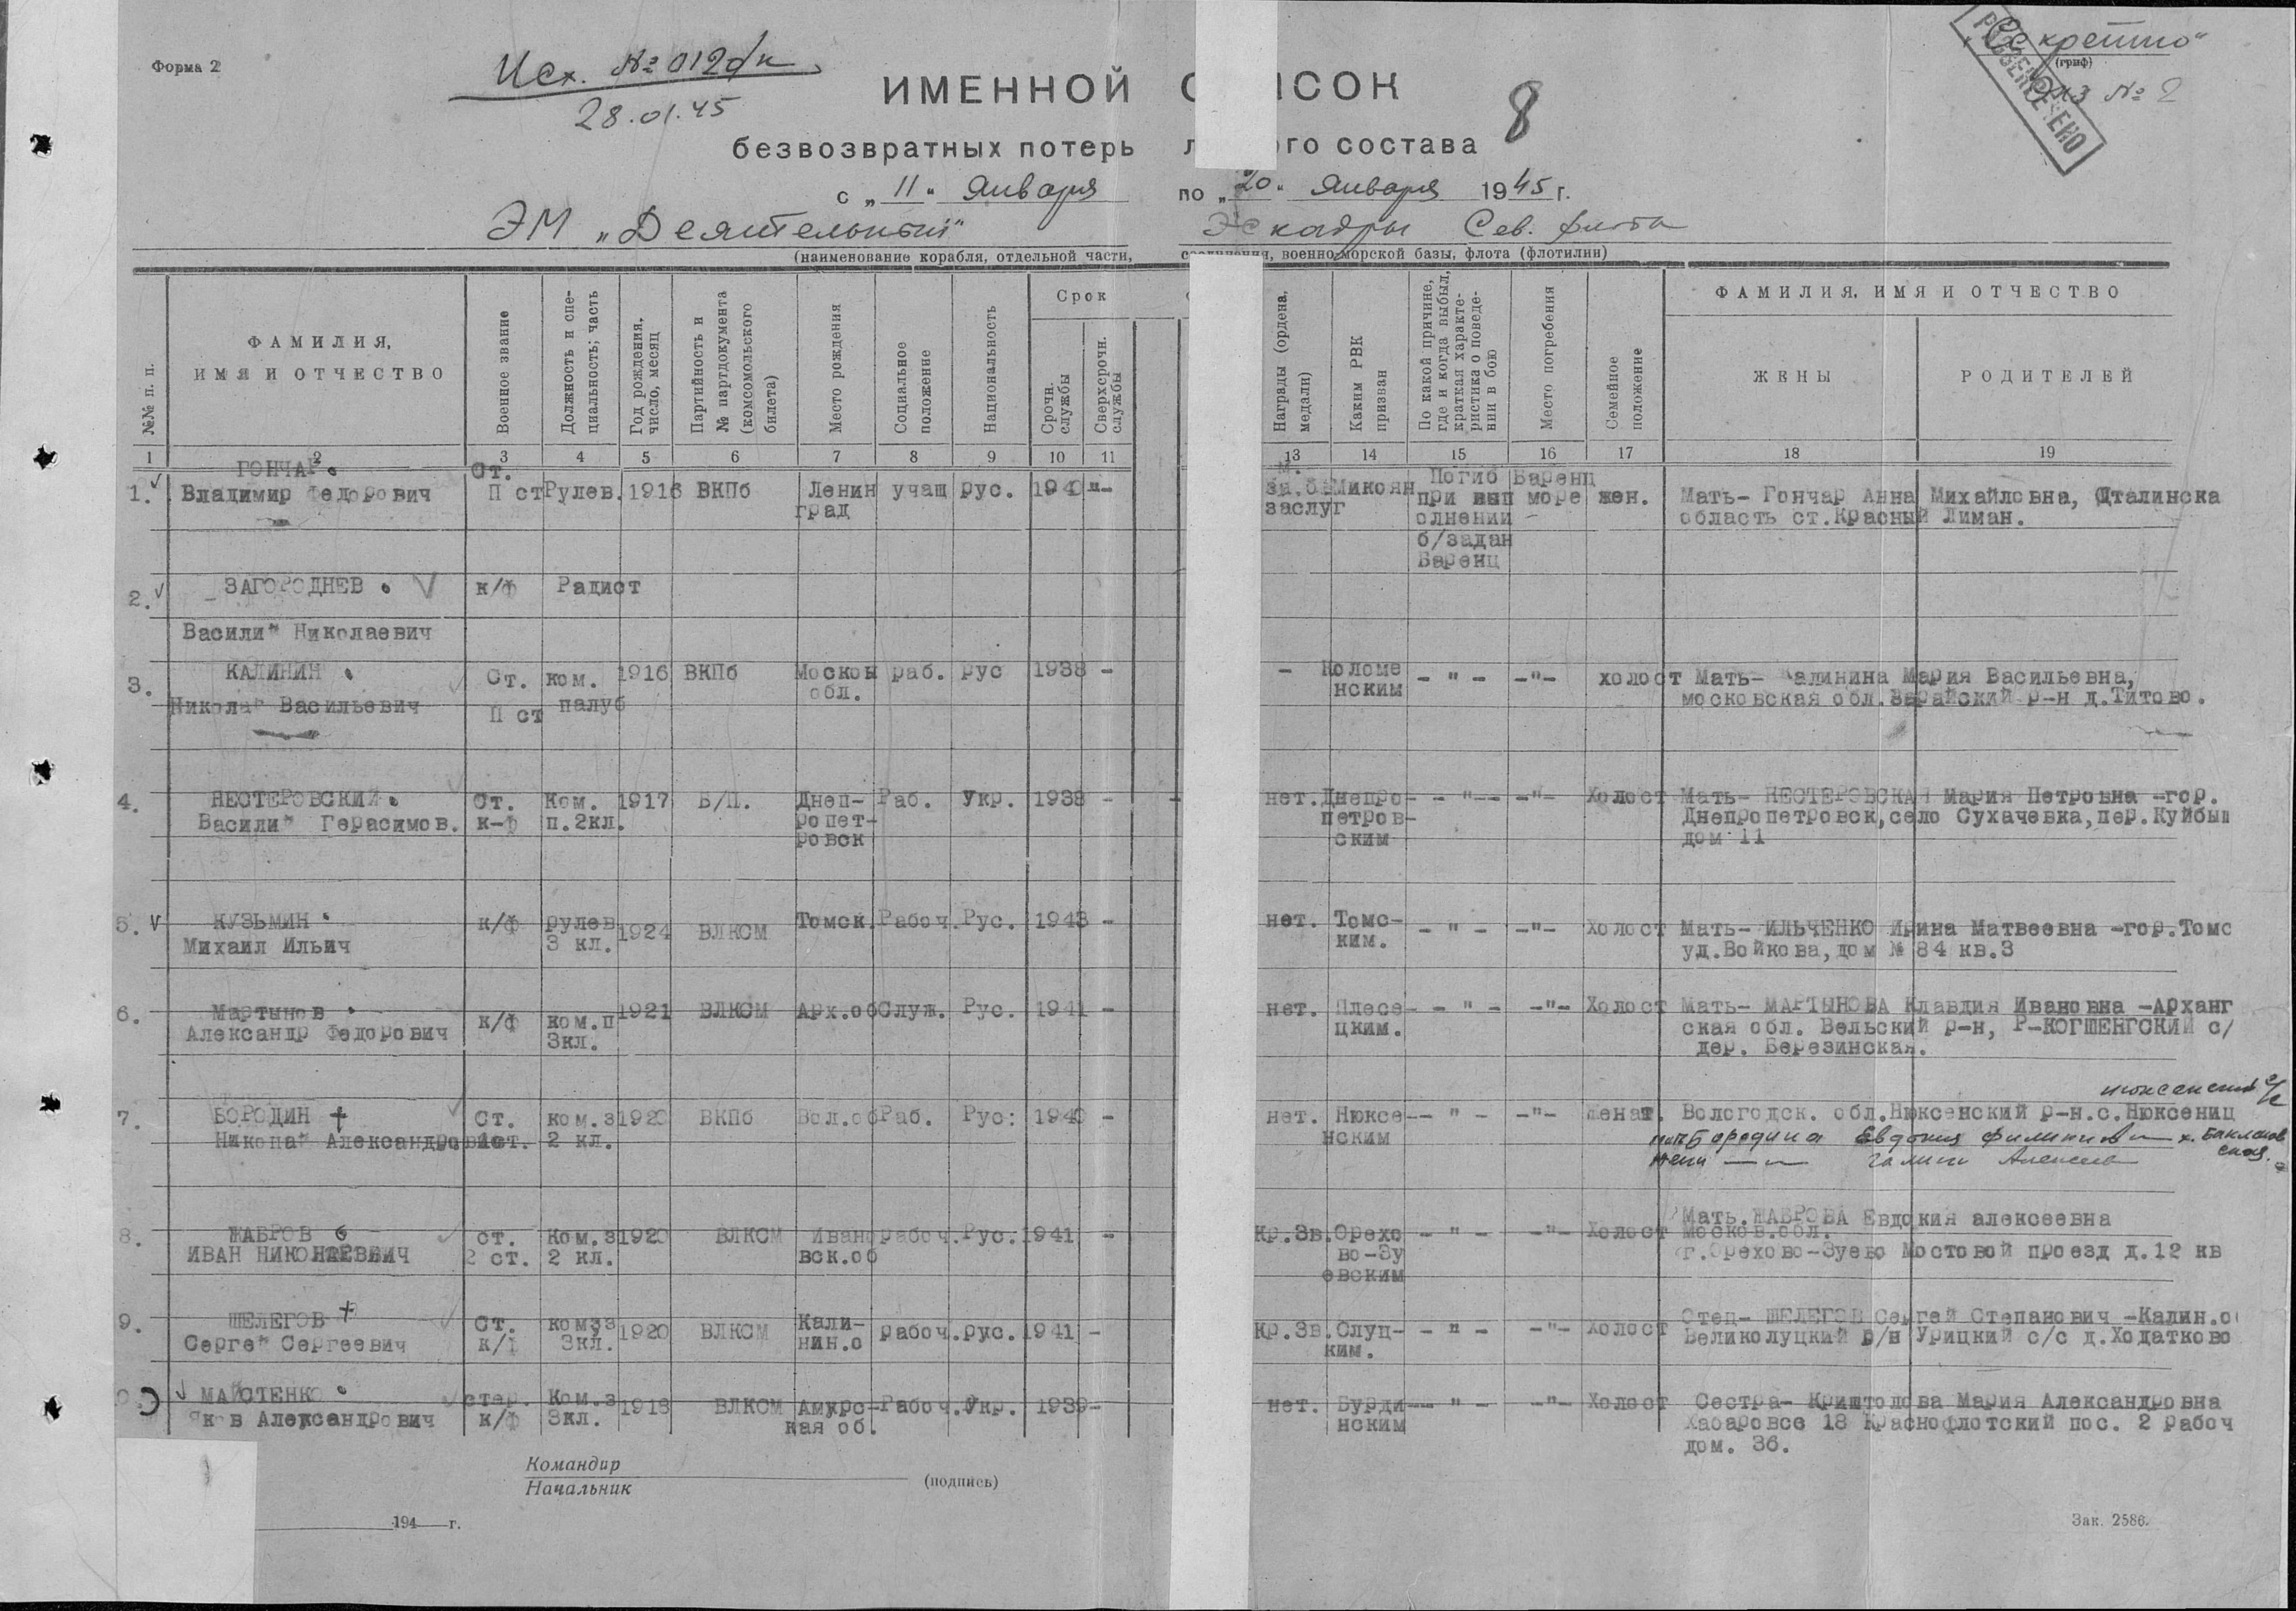 Форма 2
Исх. № 012д/к
28.01.45
„Секретно“
(гриф)
Экз № 2
РАССЕКРЕЧЕНО
ИМЕННОЙ С ИСОК
8
безвозвратных потерь л ого состава
с „11“ Января по „20“ Января 1945 г.
ЭМ „Деятельный“ Эскадры Сев. флота
(наименование корабля, отдельной части, соединения, военно-морской базы, флота (флотилии)
№№ п. п.
ФАМИЛИЯ, ИМЯ И ОТЧЕСТВО
Военное звание
Должность и специальность; часть
Год рождения, число, месяц
Партийность и № партдокумента (комсомольского билета)
Место рождения
Социальное положение
Национальность
Срок
Срочн. службы
Сверхсрочн. службы
Награды (ордена, медали)
Каким РВК призван
По какой причине, где и когда выбыл, краткая характеристика о поведении в бою
Место погребения
Семейное положение
ФАМИЛИЯ, ИМЯ И ОТЧЕСТВО
ЖЕНЫ
РОДИТЕЛЕЙ
1 2 3 4 5 6 7 8 9 10 11 13 14 15 16 17 18 19
ГОНЧАР Ст. м. Погиб Баренц
1. Владимир Федорович П ст Рулев. 1916 ВКПб Ленин учащ рус. 1940 -"- за.бо Микоян при вып море жен. Мать- Гончар Анна Михайловна, Сталинска
град заслуг олнении - область ст.Красный Лиман.
б/задан
Баренц
2. ЗАГОРОДНЕВ к/ф Радист
Васили" Николаевич
3. КАЛИНИН Ст. ком. 1916 ВКПб Москов раб. рус 1938 - - Коломе - " - -"- холост Мать- Калинина Мария Васильевна,
Никола" Васильевич П ст палуб обл. нским московская обл.Зарайский р-н д.Титово.
4. НЕСТЕРОВСКИЙ Ст. Ком. 1917 Б/П. Днеп- Раб. Укр. 1938 - нет. Днепро- - "-- -"- Холост Мать- НЕСТЕРОВСКАЯ Мария Петровна -гор.
Васили" Герасимов. к-ф п.2кл. ропет- петров- Днепропетровск,село Сухачевка,пер.Куйбыш
ровск ским дом 11
5. КУЗЬМИН к/ф рулев 1924 ВЛКСМ Томск. Рабоч. Рус. 1943 - нет. Томс- - " - -"- Холост Мать- ИЛЬЧЕНКО Ирина Матвеевна -гор.Томс
Михаил Ильич 3 кл. ким. ул.Войкова,дом № 84 кв.3
6. Мартынов к/ф ком.п 1921 ВЛКСМ Арх.об Служ. Рус. 1941 - нет. Плесе- - " - -"- Холост Мать- МАРТЫНОВА Клавдия Ивановна -Арханг
Александр Федорович 3кл. цким. ская обл. Вельский р-н, Р-КОГШЕНГСКИЙ с/
дер. Березинская.
7. БОРОДИН Ст. ком.з 1920 ВКПб Вол.об Раб. Рус: 1940 - нет. Нюксе-- " - -"- женат. Вологодск. обл.Нюксенский р-н.с.Нюксениц
Никола" Александрович 2 кл. нским мать Бородина Евдокия
8. ЖАБРОВ ст. Ком.з 1920 ВЛКСМ Иван рабоч. Рус. 1941 - Кр.Зв. Орехо - " - -"- Холост Мать.ЖАБРОВА Евдокия алексеевна
ИВАН НИКОЛАЕВИЧ 2 ст. 2 кл. вск.об во-Зу Москов.обл.
евским г.Орехово-Зуево Мостовой проезд д.12 кв
9. ШЕЛЕГОВ Ст. комзз 1920 ВЛКСМ Кали- рабоч. рус. 1941 - Кр.Зв. Слуц- - " - -"- Холост Отец- ШЕЛЕГОВ Сергей Степанович -Калин.о
Серге" Сергеевич к/ф 3кл. нин.о ким. Великолуцкий р/н Урицкий с/с д.Ходатково
МАЙСТЕНКО стар. Ком.з 1918 ВЛКСМ Амурс- Рабоч. Укр. 1939- нет. Бурди-- " - -"- Холост Сестра- Криштопова Мария Александровна
Яков Александрович к/ф 3кл. кая об. нский Хабаровсе 18 Краснофлотский пос. 2 рабоч
дом. 36.
Командир
Начальник
(подпись)
194 г.
Зак. 2586.